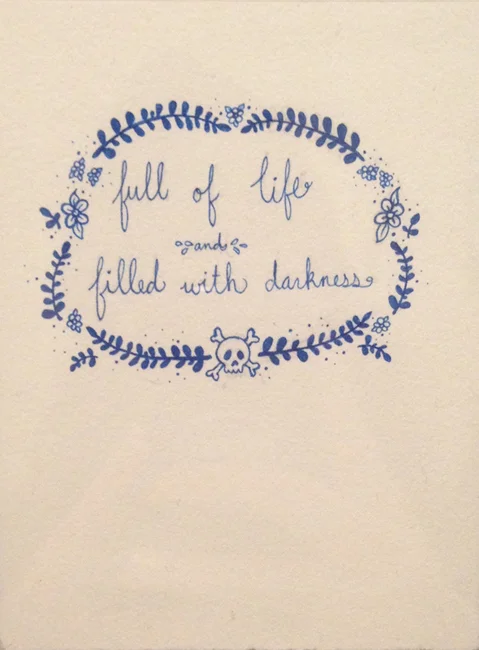 full of life
and
filled with darkness